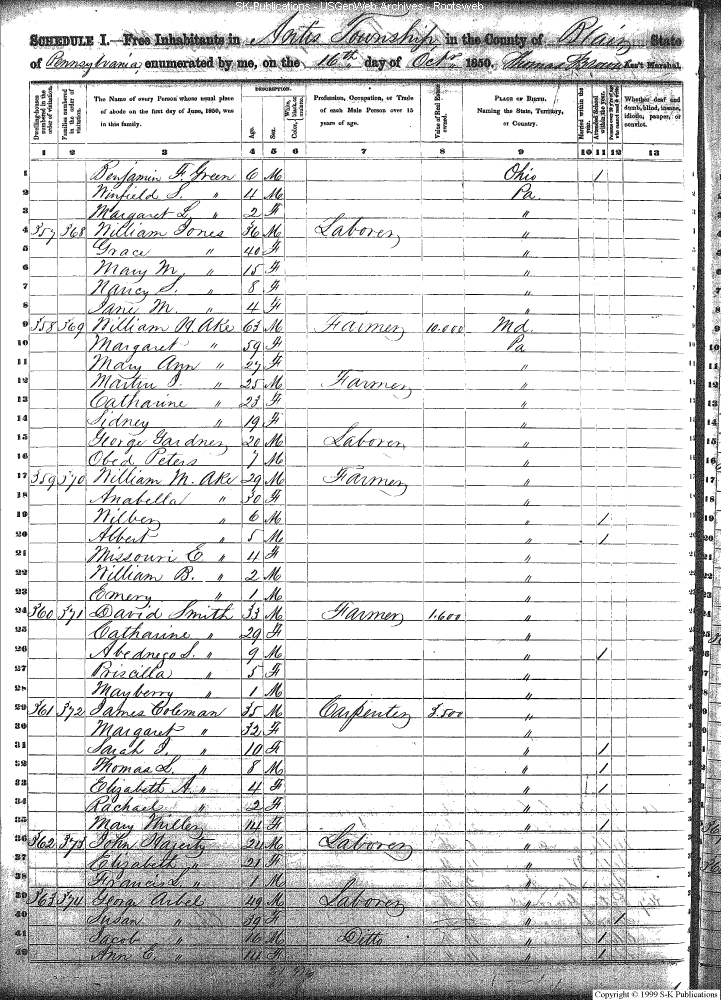 SK-Publications - USGenWeb Archives - Rootsweb
SCHEDULE I.—Free Inhabitants in Antis Township in the County of Blair State
of Pennsylvania enumerated by me, on the 16th day of Octr 1850. Thomas Ass't Marshal.
Dwelling-houses numbered in the order of visitation.
Families numbered in the order of visitation.
The Name of every Person whose usual place of abode on the first day of June, 1850, was in this family.
DESCRIPTION.
Age.
Sex.
White, Color black, or mulatto.
Profession, Occupation, or Trade of each Male Person over 15 years of age.
Value of Real Estate owned.
PLACE OF BIRTH. Naming the State, Territory, or Country.
Married within the year.
Attended School within the year.
Persons over 20 y'rs of age who cannot read & write.
Whether deaf and dumb, blind, insane, idiotic, pauper, or convict.
1 2 3 4 5 6 7 8 9 10 11 12 13
1 Benjamin F. Green 6 M Ohio 1
2 Winfield S. " 4 M Pa.
3 Margaret L. " 2 F "
4 357 368 William Jones 36 M Laborer "
5 Grace " 40 F "
6 Mary M. " 15 F "
7 Nancy S. " 8 F "
8 Jane M. " 4 F "
9 358 369 William H. Ake 63 M Farmer 10.000 Md.
10 Margaret " 59 F Pa
11 Mary Ann " 27 F "
12 Martin J. " 25 M Farmer "
13 Catharine " 23 F "
14 Sidney " 19 F "
15 George Gardner 20 M Laborer "
16 Obed Peters 7 M "
17 359 370 William M. Ake 29 M Farmer "
18 Anabella " 30 F "
19 Wilber " 6 M " 1
20 Albert " 5 M " 1
21 Missouri E. " 4 F "
22 William B. " 2 M "
23 Emery " 1 M "
24 360 371 David Smith 33 M Farmer 1.600 "
25 Catharine " 29 F "
26 Abednego S. " 9 M " 1
27 Priscilla " 5 F "
28 Mayberry " 1 M "
29 361 372 James Coleman 35 M Carpenter 3.500 "
30 Margaret " 32 F "
31 Sarah J. " 10 F " 1
32 Thomas L. " 8 M " 1
33 Elizabeth A. " 4 F " 1
34 Rachael " 2 F "
35 Mary Miller 14 F " 1
36 362 373 John Hagerty 24 M Laborer "
37 Elizabeth " 21 F "
38 Francis L. " 1 M "
39 363 374 George Arbel 49 M Laborer "
40 Susan " 39 F " 1
41 Jacob " 16 M Ditto " 1
42 Ann E. " 14 F " 1
Copyright © 1999 S-K Publications